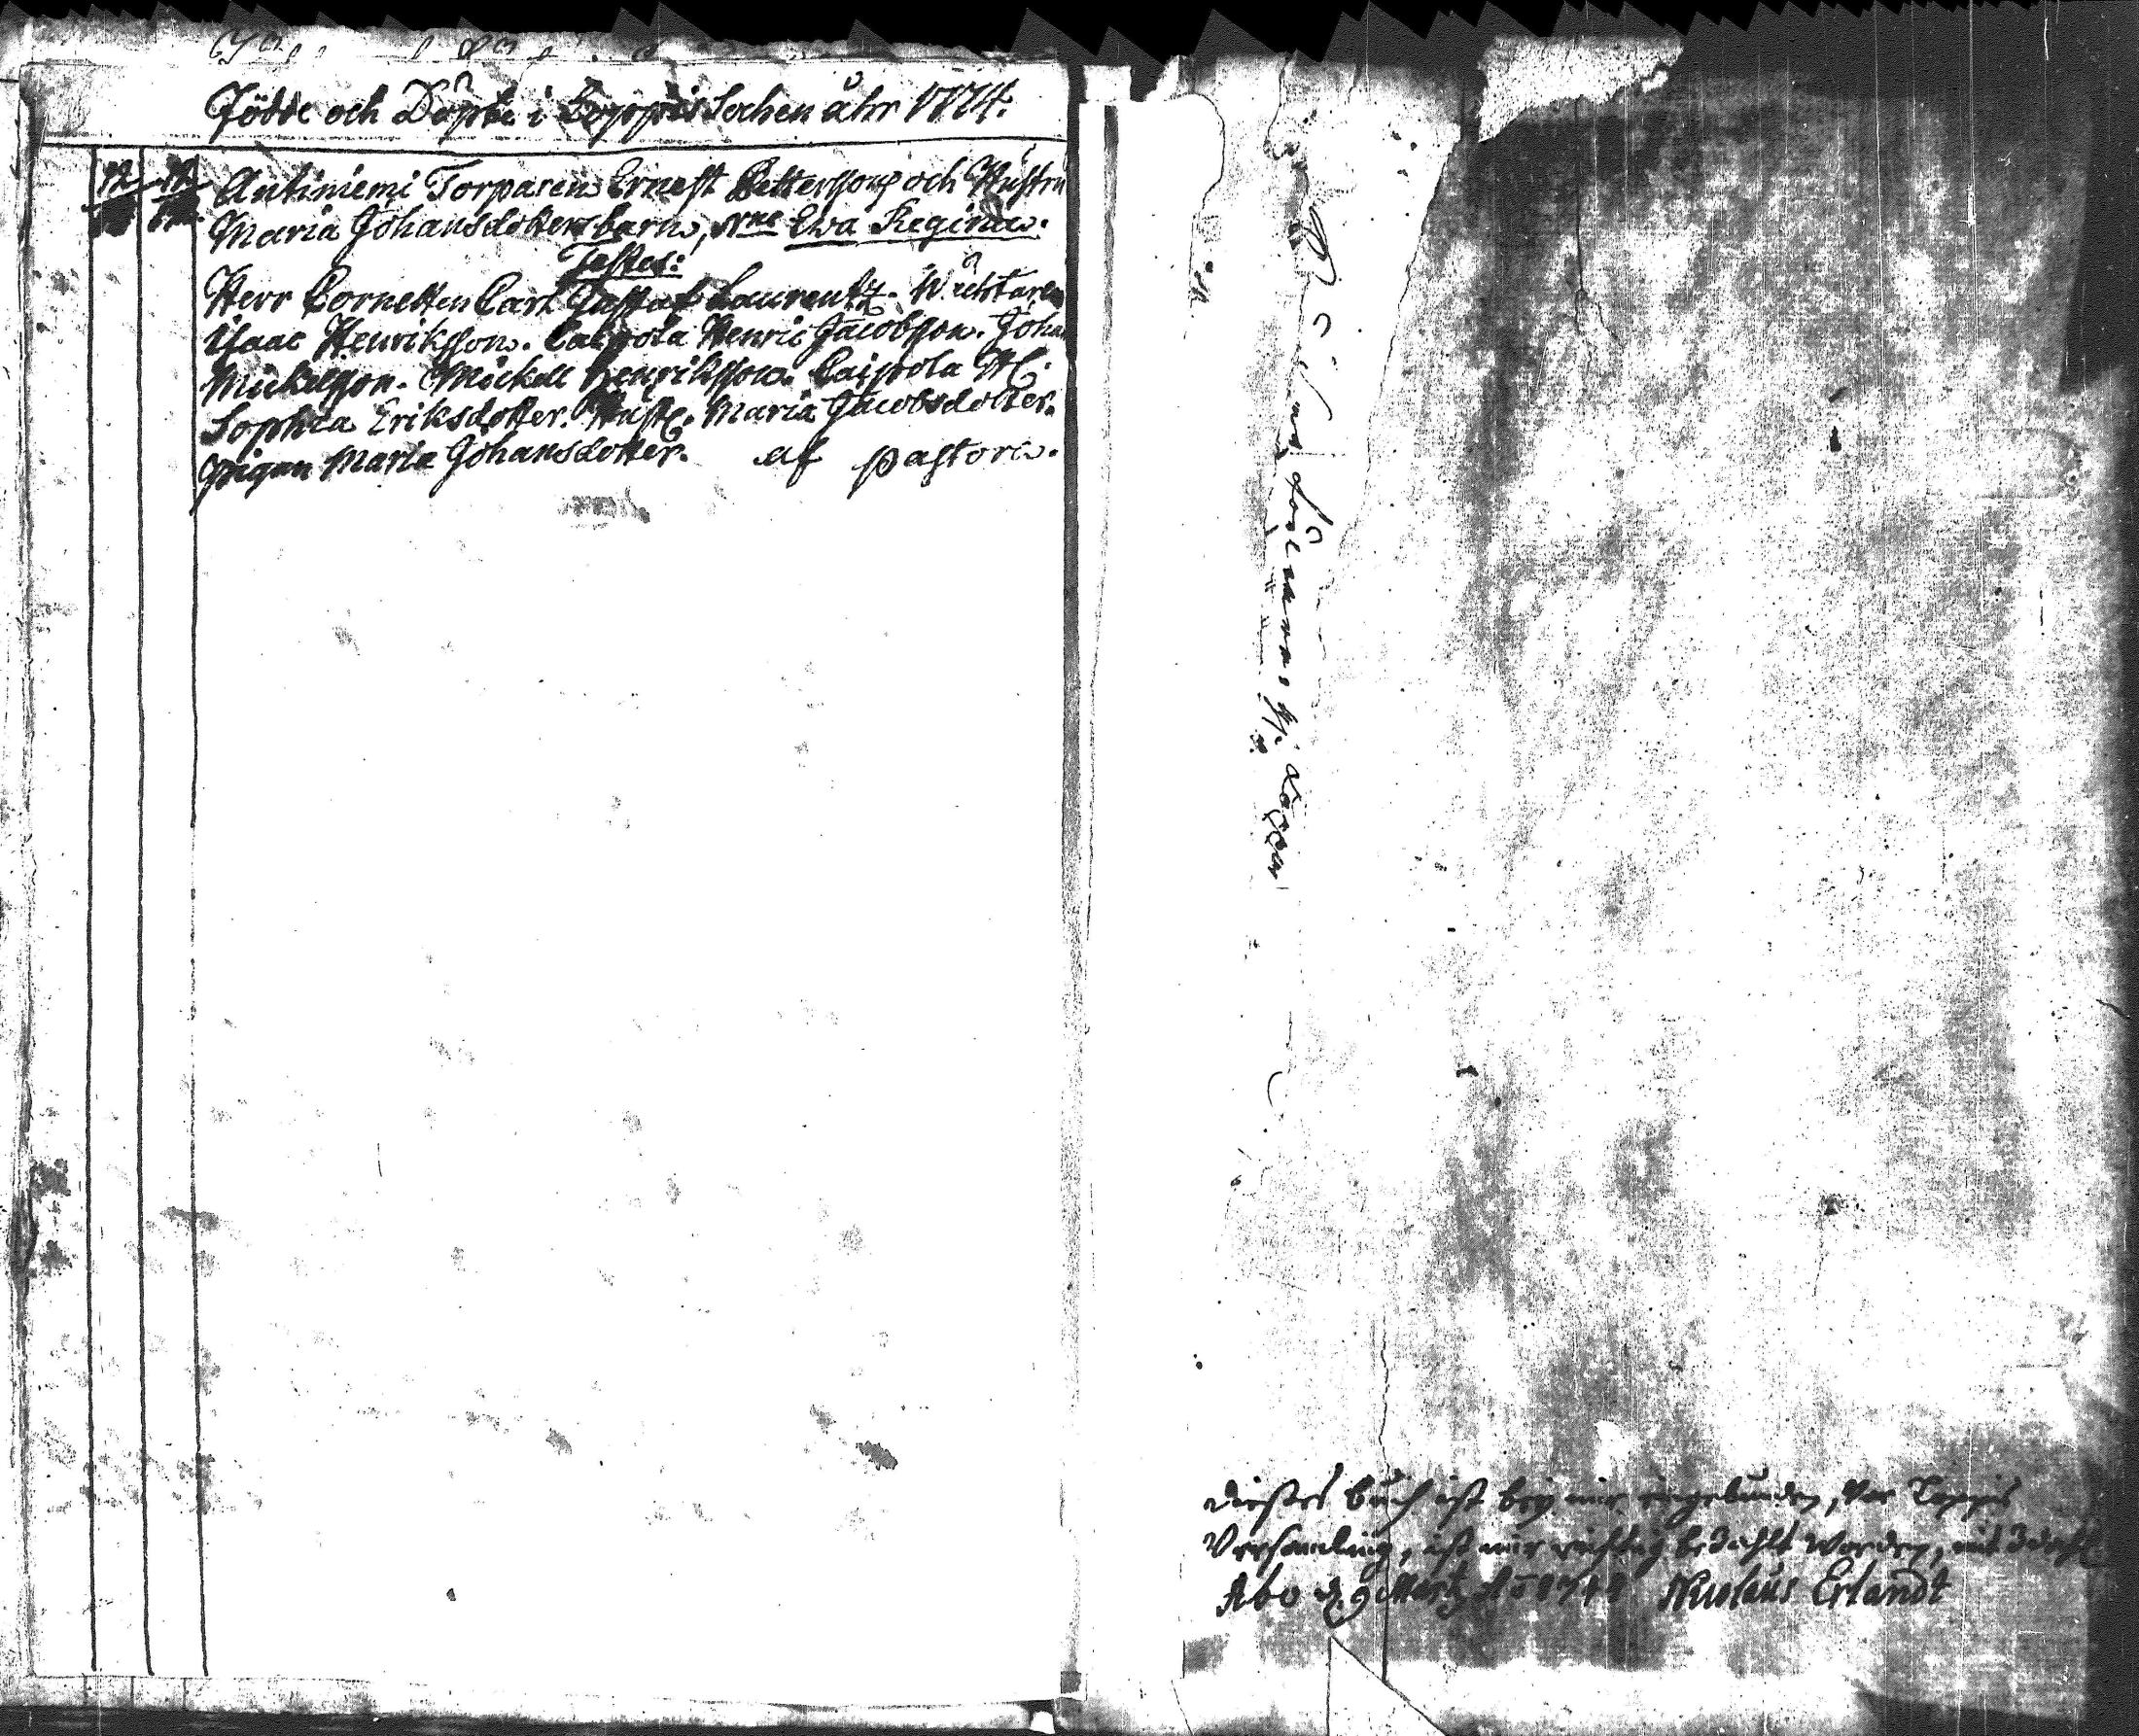 Födde och Döpte i Loppis Sochen åhr 1774.
12 12
Antiniemi Torparens Ernest Petterssons och Hustru
Maria Johansdotters barn, Nne Ewa Regina.
Testes:
Herr Cornetten Carl Gustaf Laurentz. Wäktaren
Isaac Henriksson. Henric Jacobsson. Johan
Mickelsson. Mickell Henriksson. H.
Sophia Eriksdotter. Hust. Maria Jacobsdotter.
Pigan Maria Johansdotter. af Pastore.
Dießes Buch ist bey mir eingebunden, Vor Loppis
Versamling, ist mir richtig bezahlt worden, mit
Abo d. 9 Martz Ao Nicolaus Erlandt